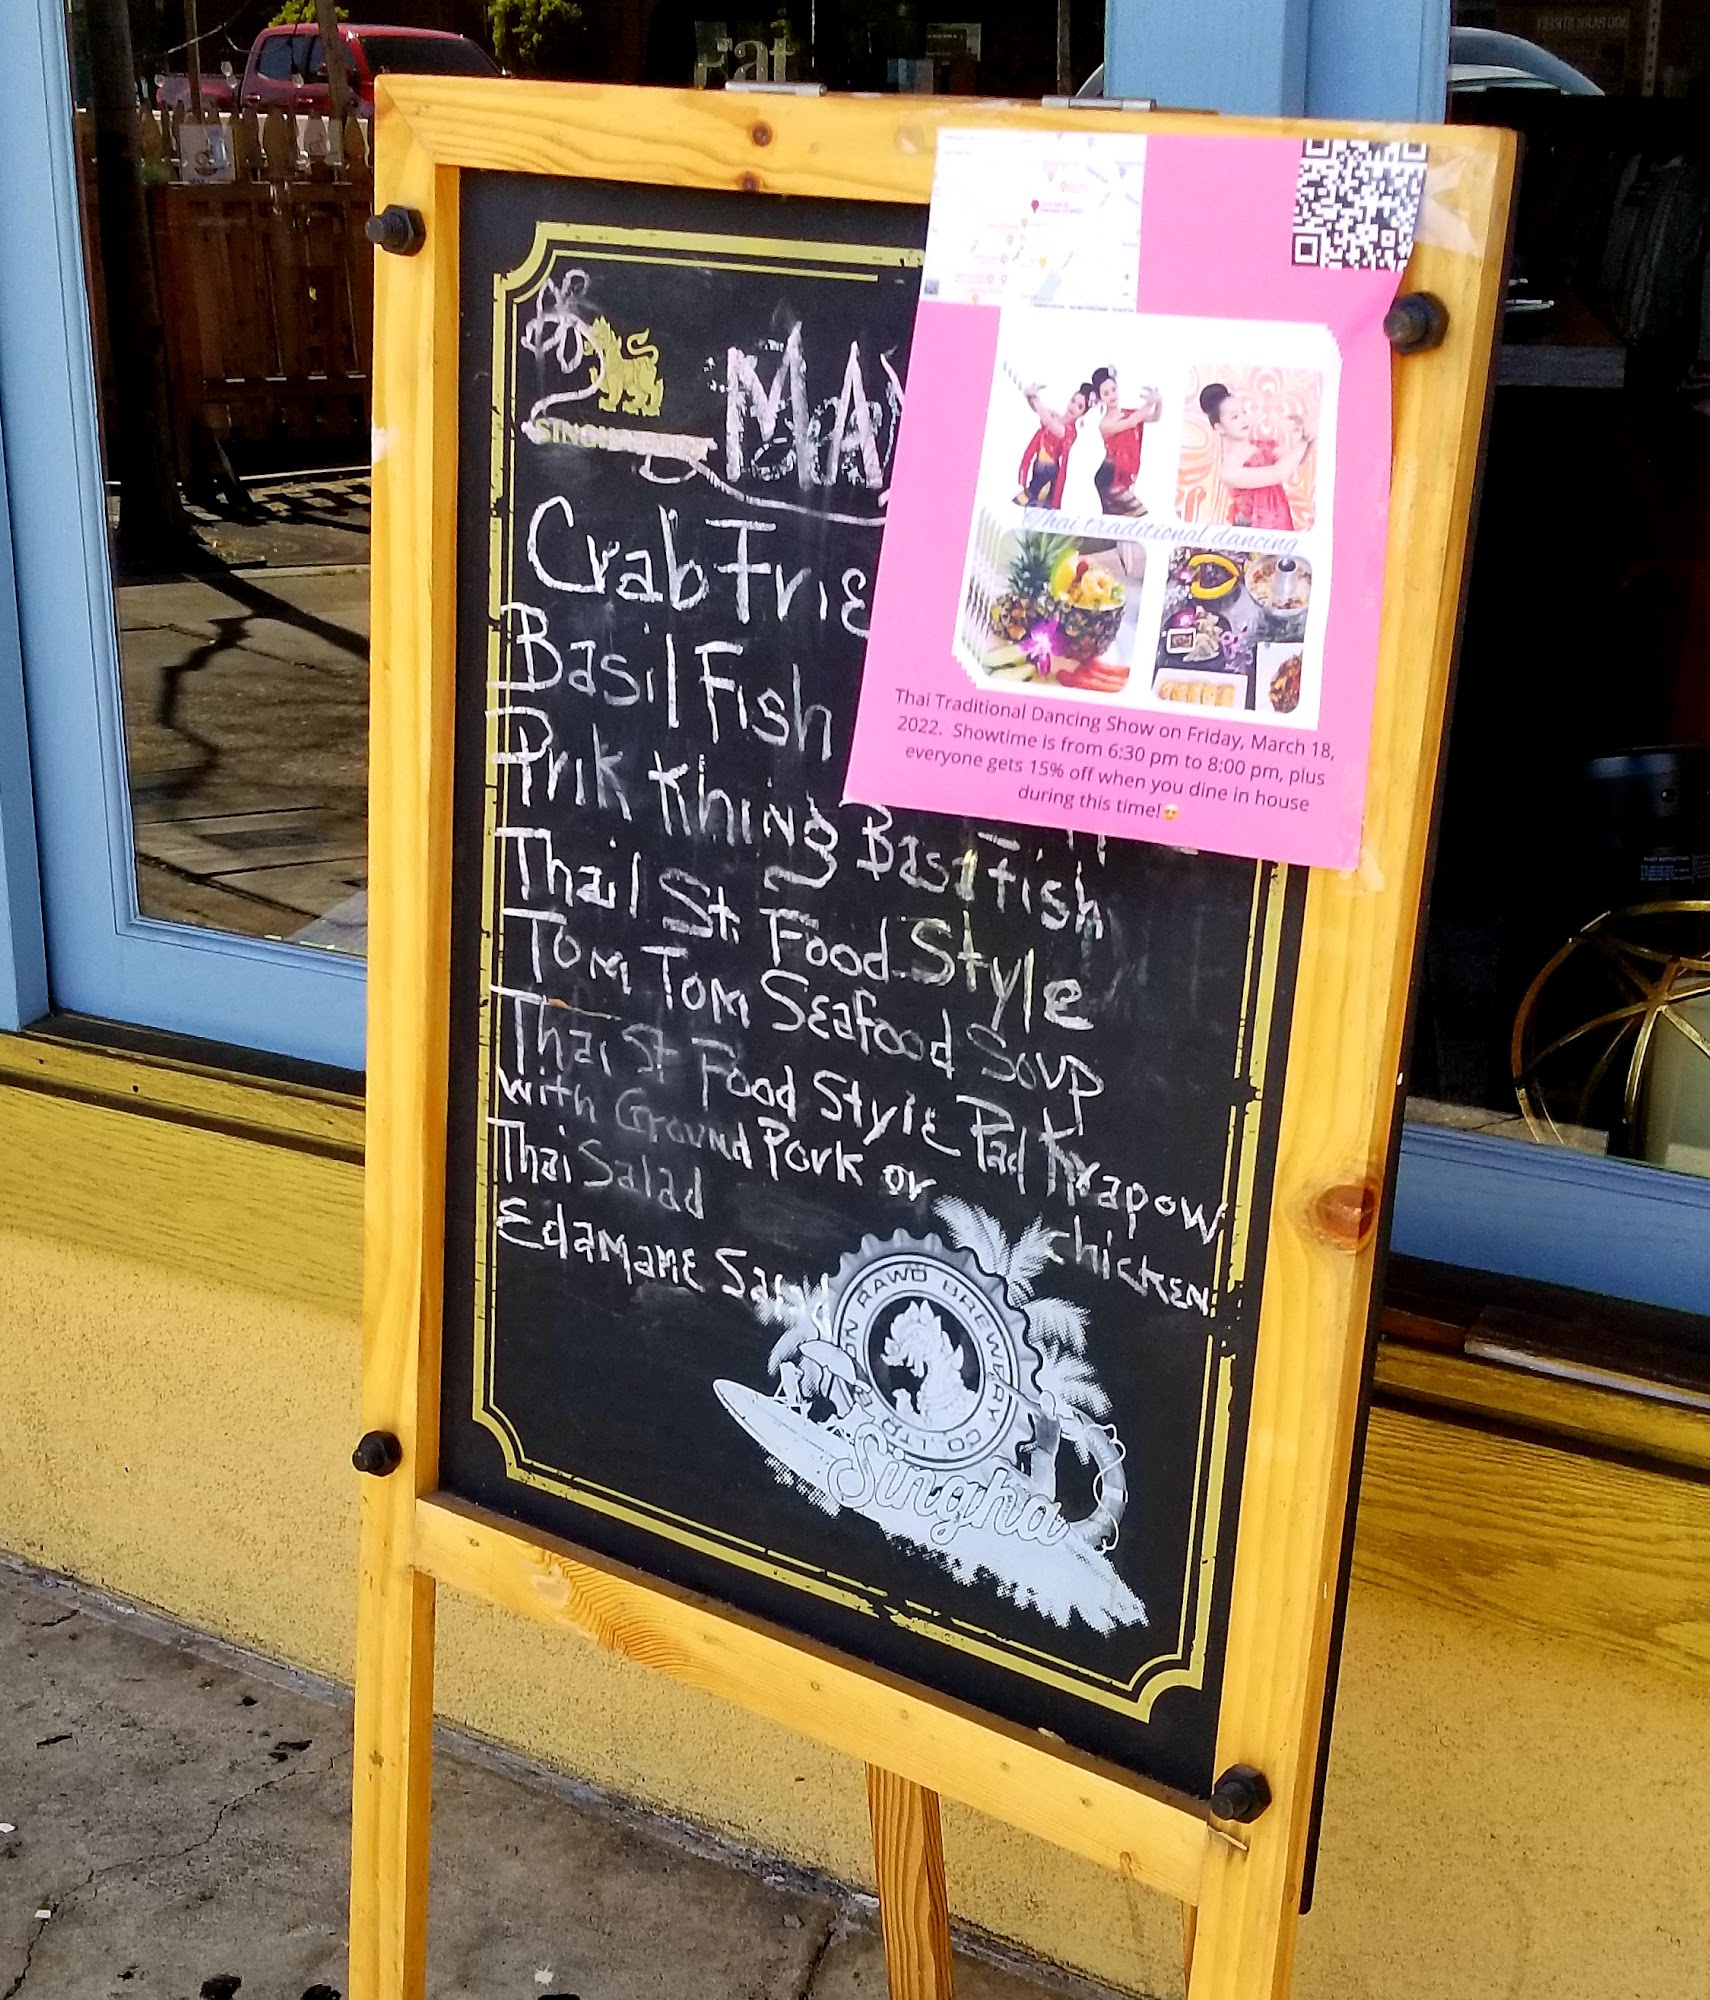 Eat
SINGHA
MAY
Crab Frie
Basil Fish
Prik Khing Basa Fish
Thail St. Food Style
Tom Tom Seafood Soup
Thai St Food Style Pad Krapow
with Ground Pork or chicken
Thai Salad
Edamame Salad
BREWERY CO.,LTD
Singha
Thai traditional dancing
Thai Traditional Dancing Show on Friday, March 18,
2022. Showtime is from 6:30 pm to 8:00 pm, plus
everyone gets 15% off when you dine in house
during this time!😍